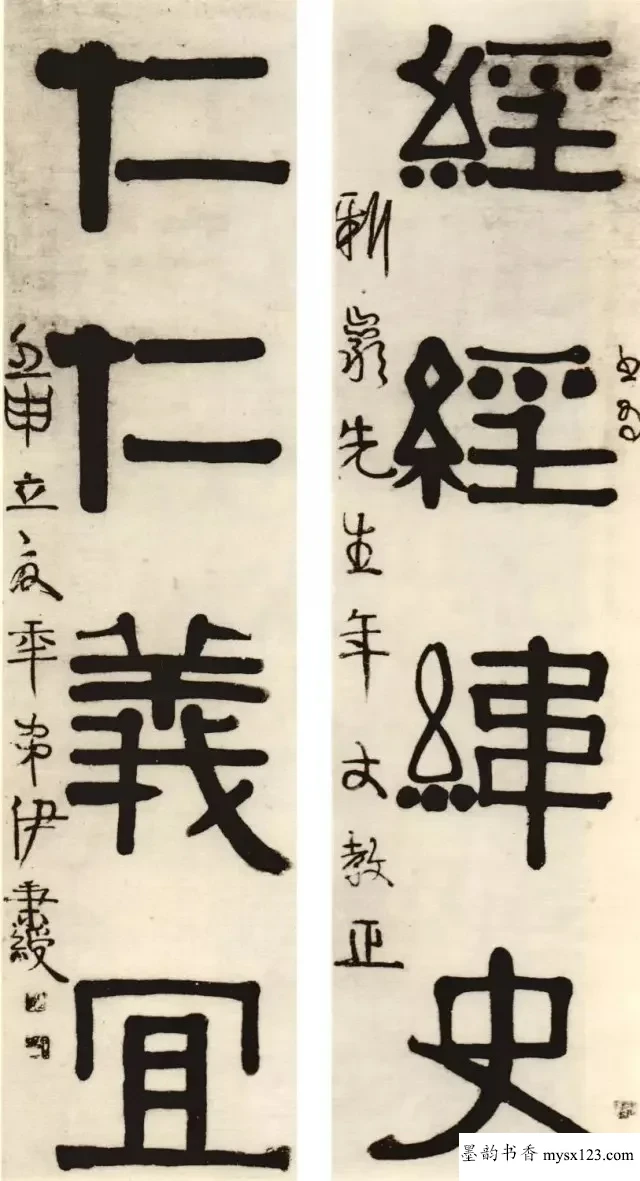 經經緯史
巖先生年丈教正
仁仁義宜
申立夏年弟伊秉綬
墨韵书香 mysx123.com